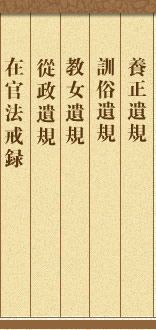 養正遺規
訓俗遺規
教女遺規
從政遺規
在官法戒録